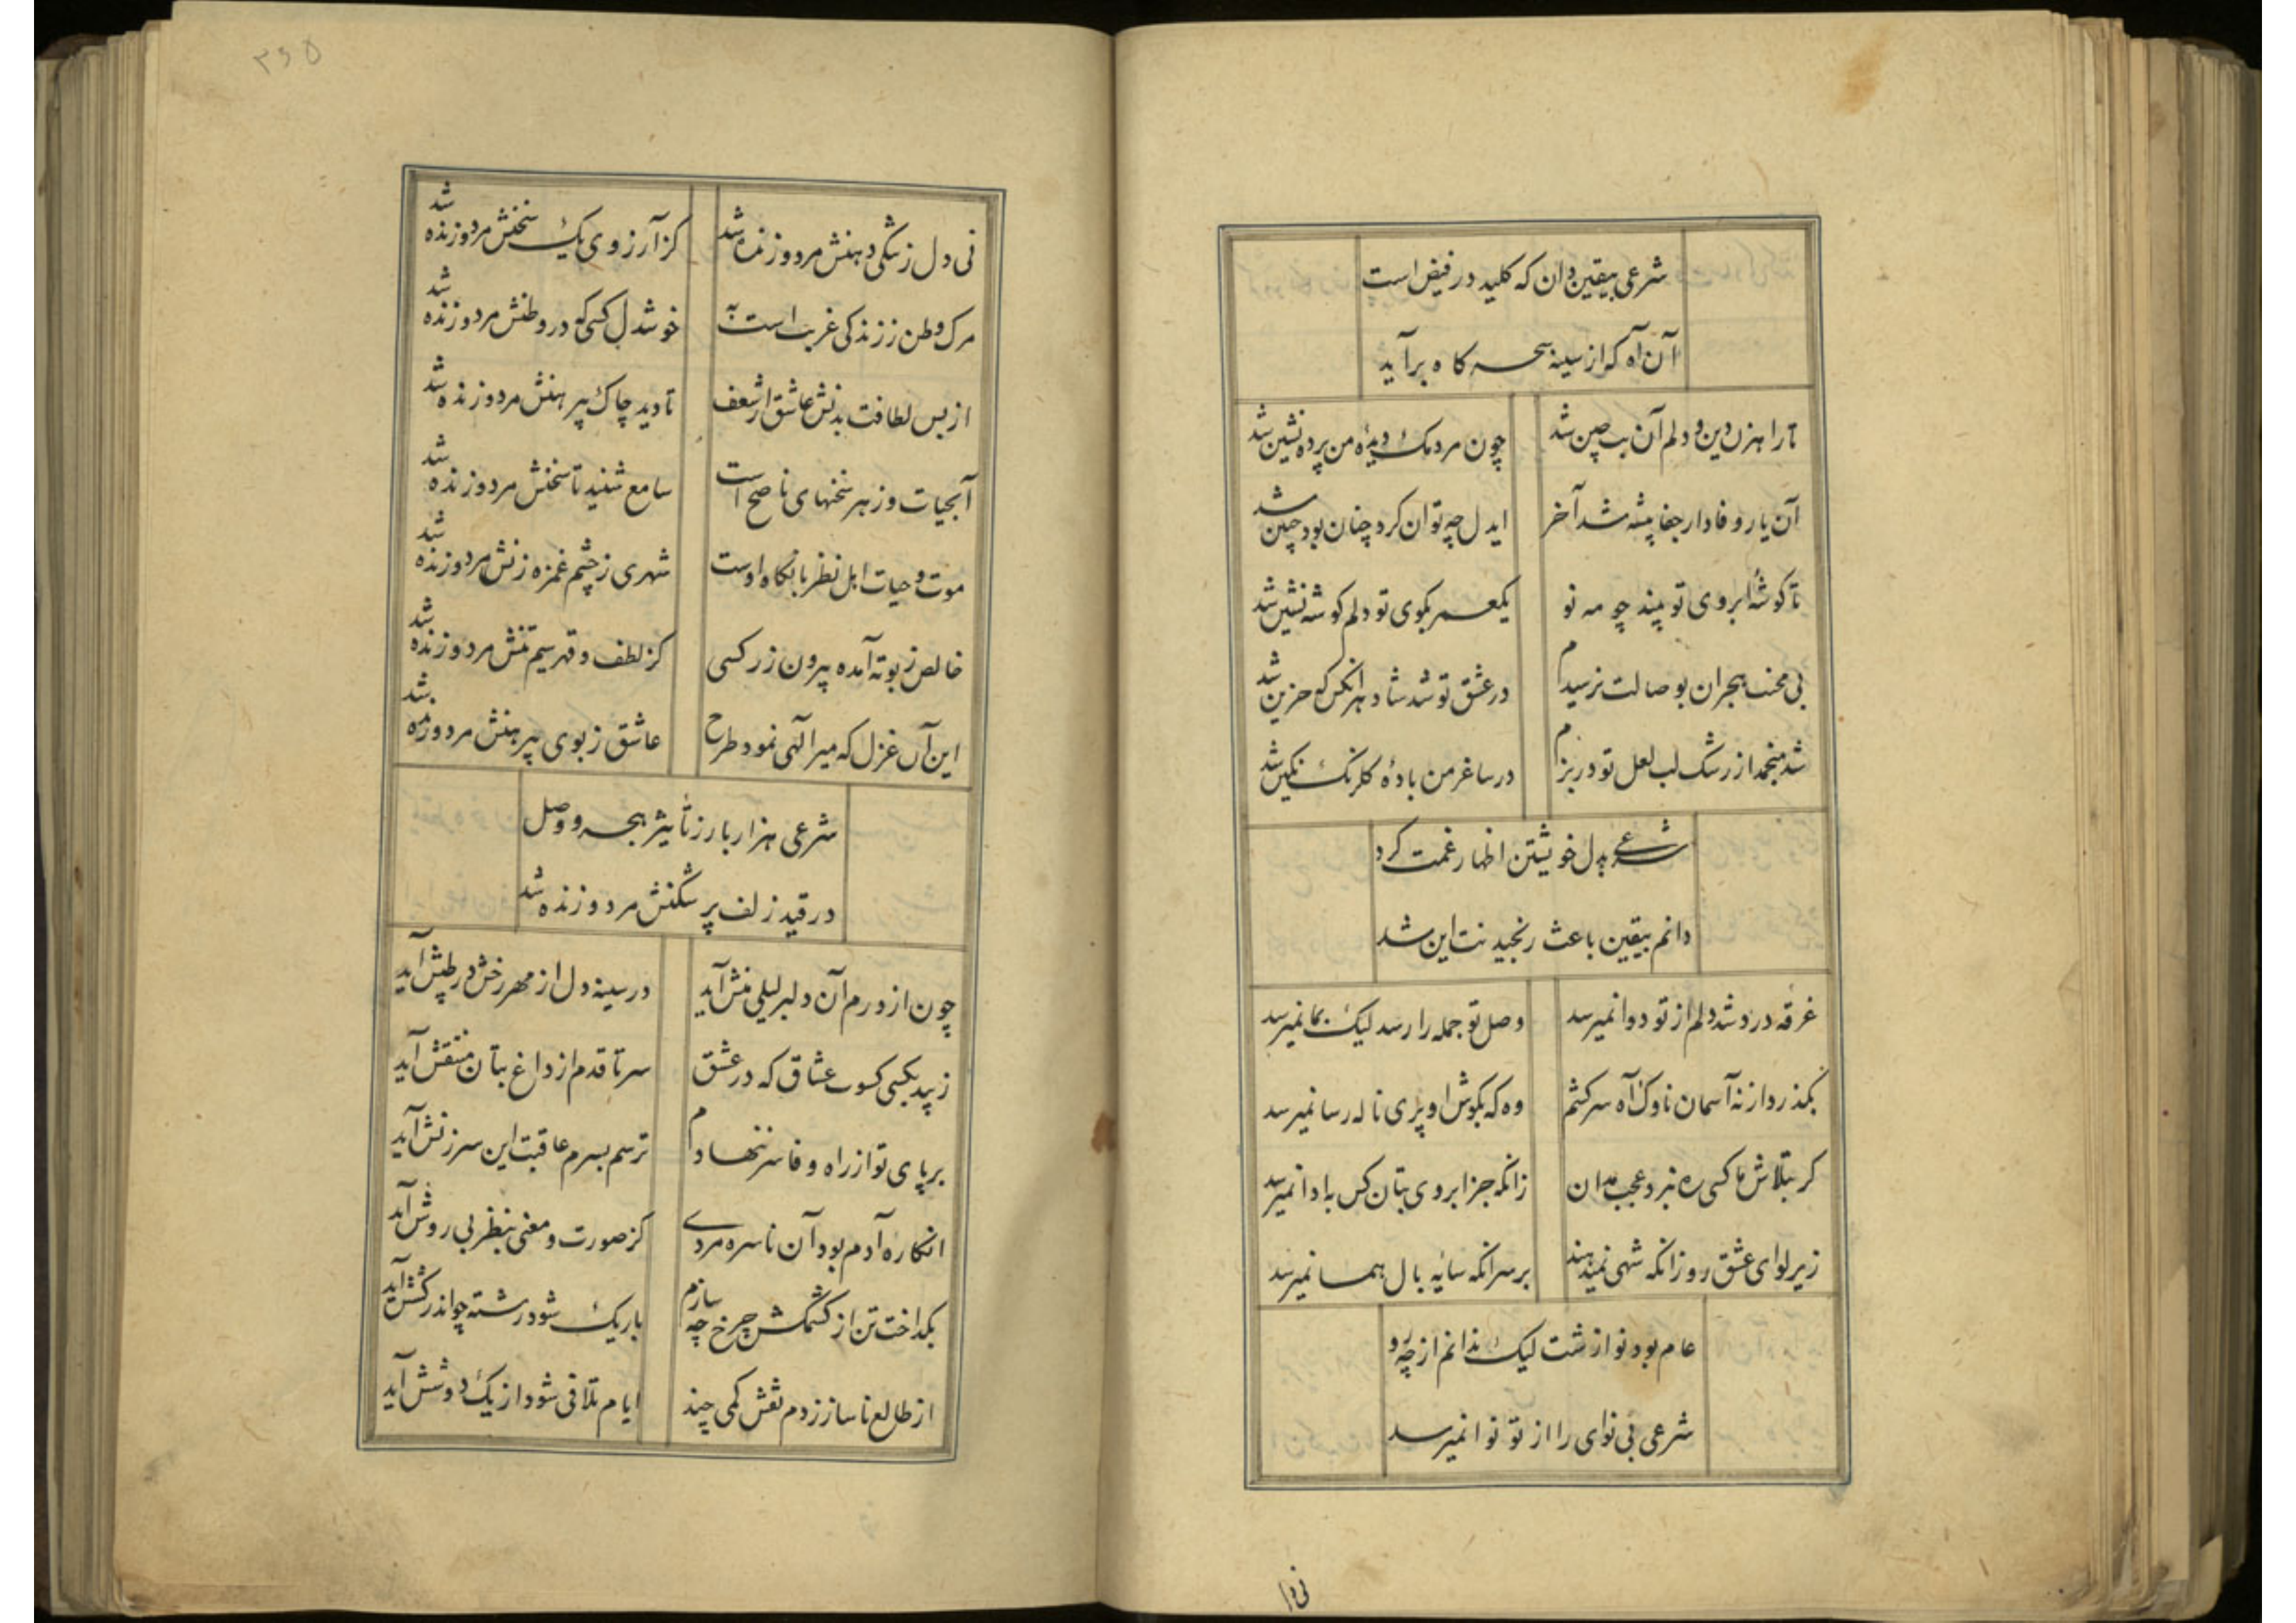 شرعی بیقین دان که کلید در فیض است
آن آه که از سینه سحرکاه برآید
تا راهزن دین و دلم آن بت چین شد
چون مردمک دیدهٔ من پرده نشین شد
آن یار وفادار جفا پیشه شد آخر
ایدل چه توان کرد چنان بود چنین شد
تا کوشهٔ ابروی تو بیند چو مه نو
یکعمر بکوی تو دلم کوشه نشین شد
بی محنت هجران بوصالت نرسیدم
در عشق تو شد شاد هرانکس که حزین شد
شد منجمد از رشک لب لعل تو در بزم
در ساغر من بادهٔ کلرنک نکین شد
شرعی بدل خویشتن اظهار غمت کرد
دانم بیقین باعث رنجیدنت این شد
غرقه درد شد دلم از تو دوا نمیرسد
وصل تو جمله را رسد لیک بما نمیرسد
بکذرد از نه آسمان ناوک آه سرکشم
وه که بکوش او پری ناله رسا نمیرسد
کر بتلاش ما کسی ره نبرد عجب مدان
زانکه جز ابروی بتان کس بادا نمیرسد
زیر لوای عشق رو زانکه شهی نمیدهند
بر سر انکه سایه بال هما نمیرسد
عام بود نوازشت لیک ندانم از چه رو
شرعی بی نوای را از تو نوا نمیرسد
نی دل
۳۶۵
نی دل ز تنکی دهنش مرد و زنده شد
کز آرزوی یک سخنش مرد و زنده شد
مرک وطن ز زندکی غربت است به
خوشدل کسی که در وطنش مرد و زنده شد
از بس لطافت بدنش عاشق از شعف
تا دید چاک پیرهنش مرد و زنده شد
آبحیات و زهر سخنهای ناصح است
سامع شنید تا سخنش مرد و زنده شد
موت و حیات اهل نظر با نکاه اوست
شهری ز چشم غمزه زنش مرد و زنده شد
خالص ز بوته آمده بیرون زر کسی
کز لطف و قهر سیم تنش مرد و زنده شد
این آن غزل که میر الهی نمود طرح
عاشق ز بوی پیرهنش مرد و زنده شد
شرعی هزار بار ز تأثیر هجر و وصل
در قید زلف پر شکنش مرد و زنده شد
چون از درم آن دلبر لیلی منش آید
در سینه دل از مهر رخش در طپش آید
زیبد بکسی کسوت عشاق که در عشق
سر تا قدم از داغ بتان منتقش آید
بر پای تو از راه وفا سر ننهادم
ترسم بسرم عاقبت این سرزنش آید
انکاره آدم بود آن ناسره مردی
کز صورت و معنی بنظر بی روش آید
بکداخت تن از کشمکش چرخ چه سازم
باریک شود رشته چو اندر کشش آید
از طالع ناساز زدم نقش کمی چند
ایام تلافی شود از یک دو شش آید